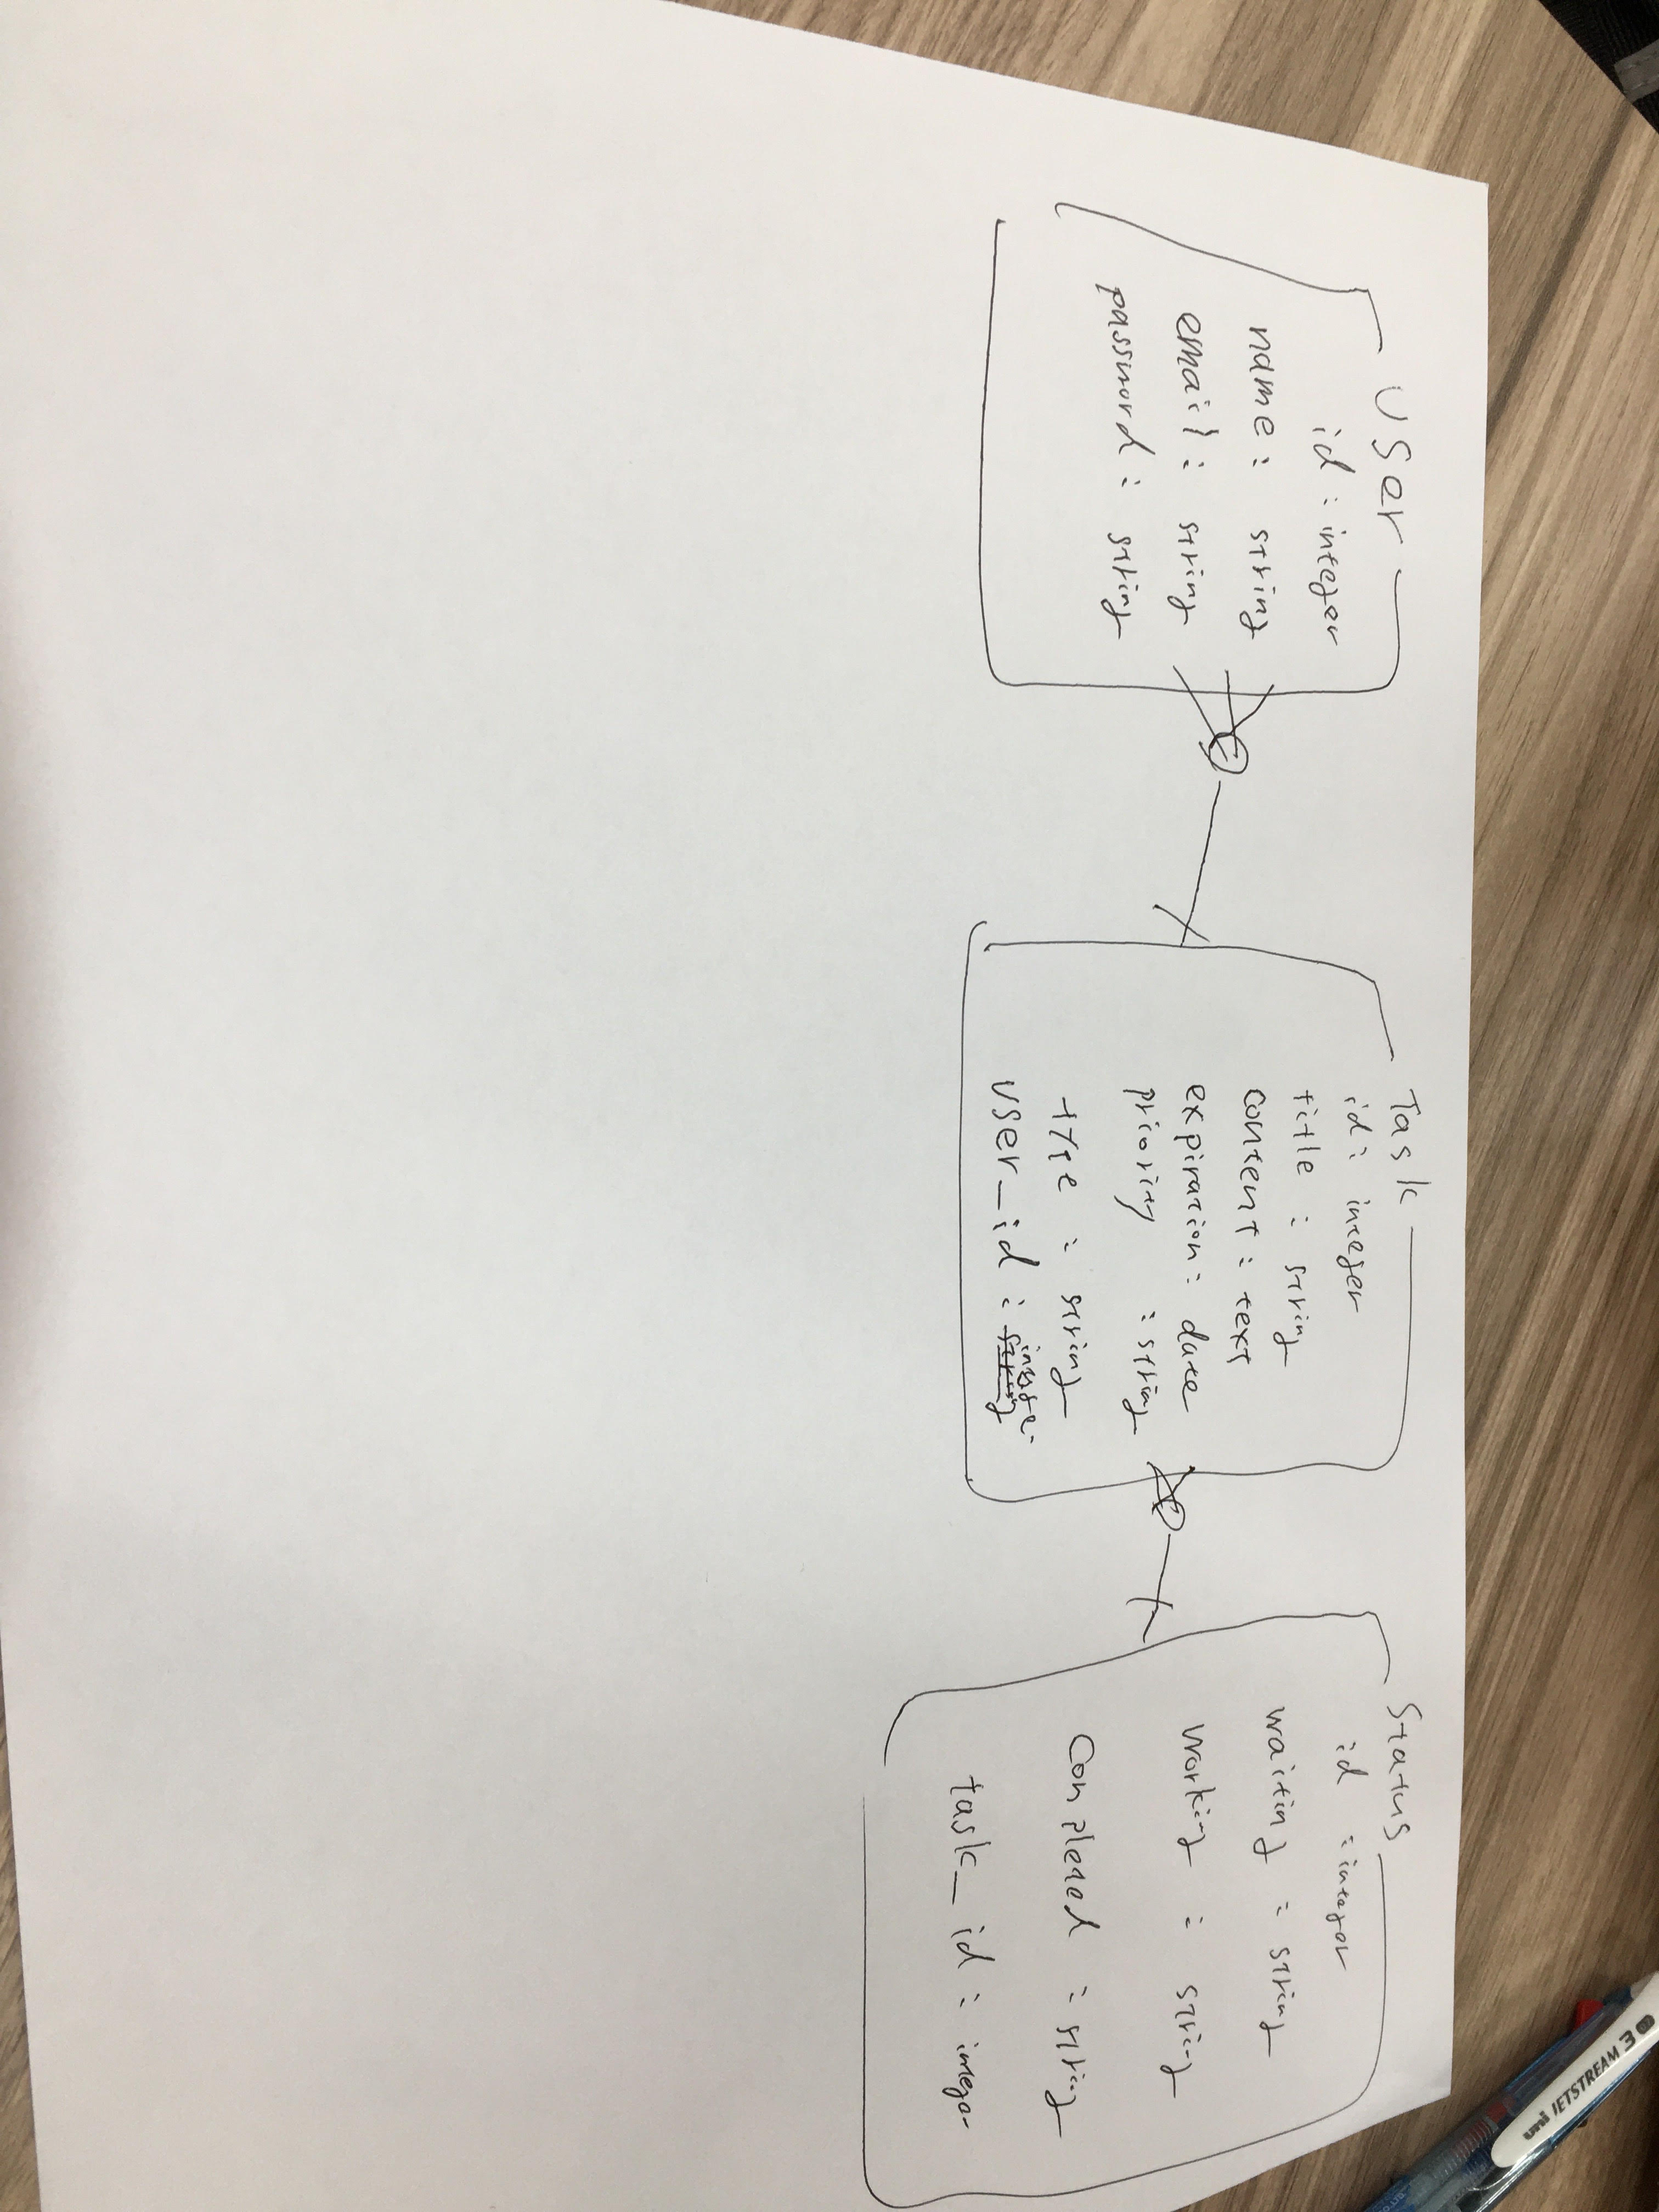 User
id : integer
name : string
email : string
password : string
Task
id : integer
title : string
content : text
expiration : date
priority : string
type : string
user_id : integer
Status
id : integer
waiting : string
working : string
Conpleted : string
task_id : integer
uni JETSTREAM 3